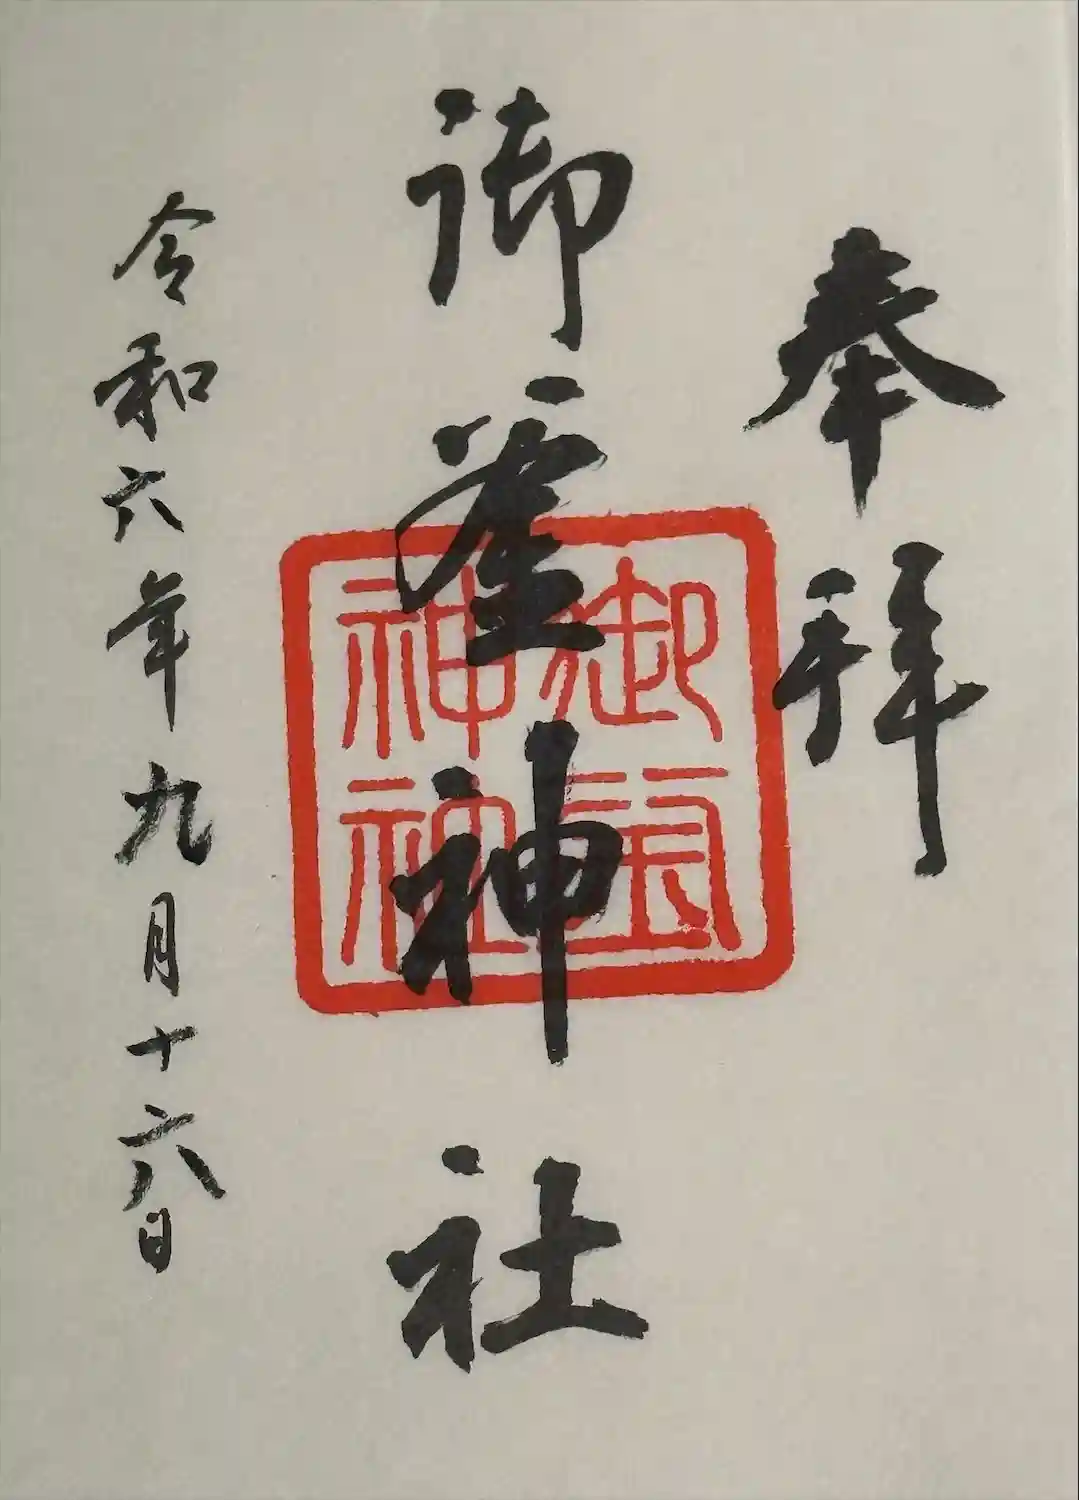 奉拝
御釜神社
御
神社
令和六年九月十六日